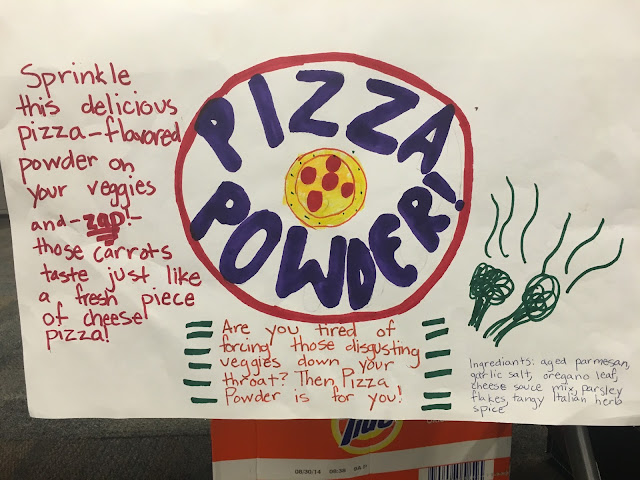 Sprinkle
this delicious
pizza-flavored
powder on
your veggies
and-zap!-
those carrots
taste just like
a fresh piece
of cheese
pizza!
PIZZA
POWDER!
Are you tired of
forcing those disgusting
veggies down your
throat? Then, Pizza
Powder is for you!
Ingrediants: aged parmesan,
garlic salt, oregano leaf,
cheese sauce mix, parsley
flakes, tangy Italian herb
spice
Tide
08/30/14 08:38